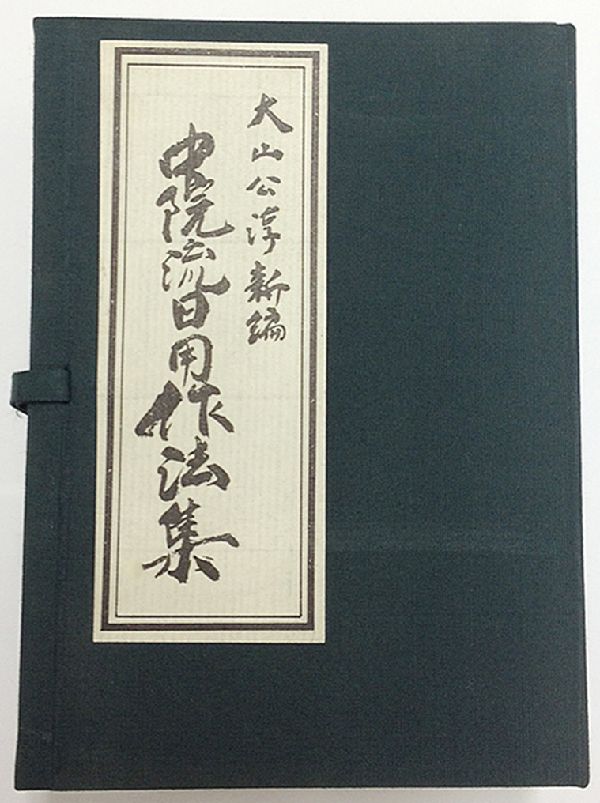 大山公淳新編
中院流日用作法集